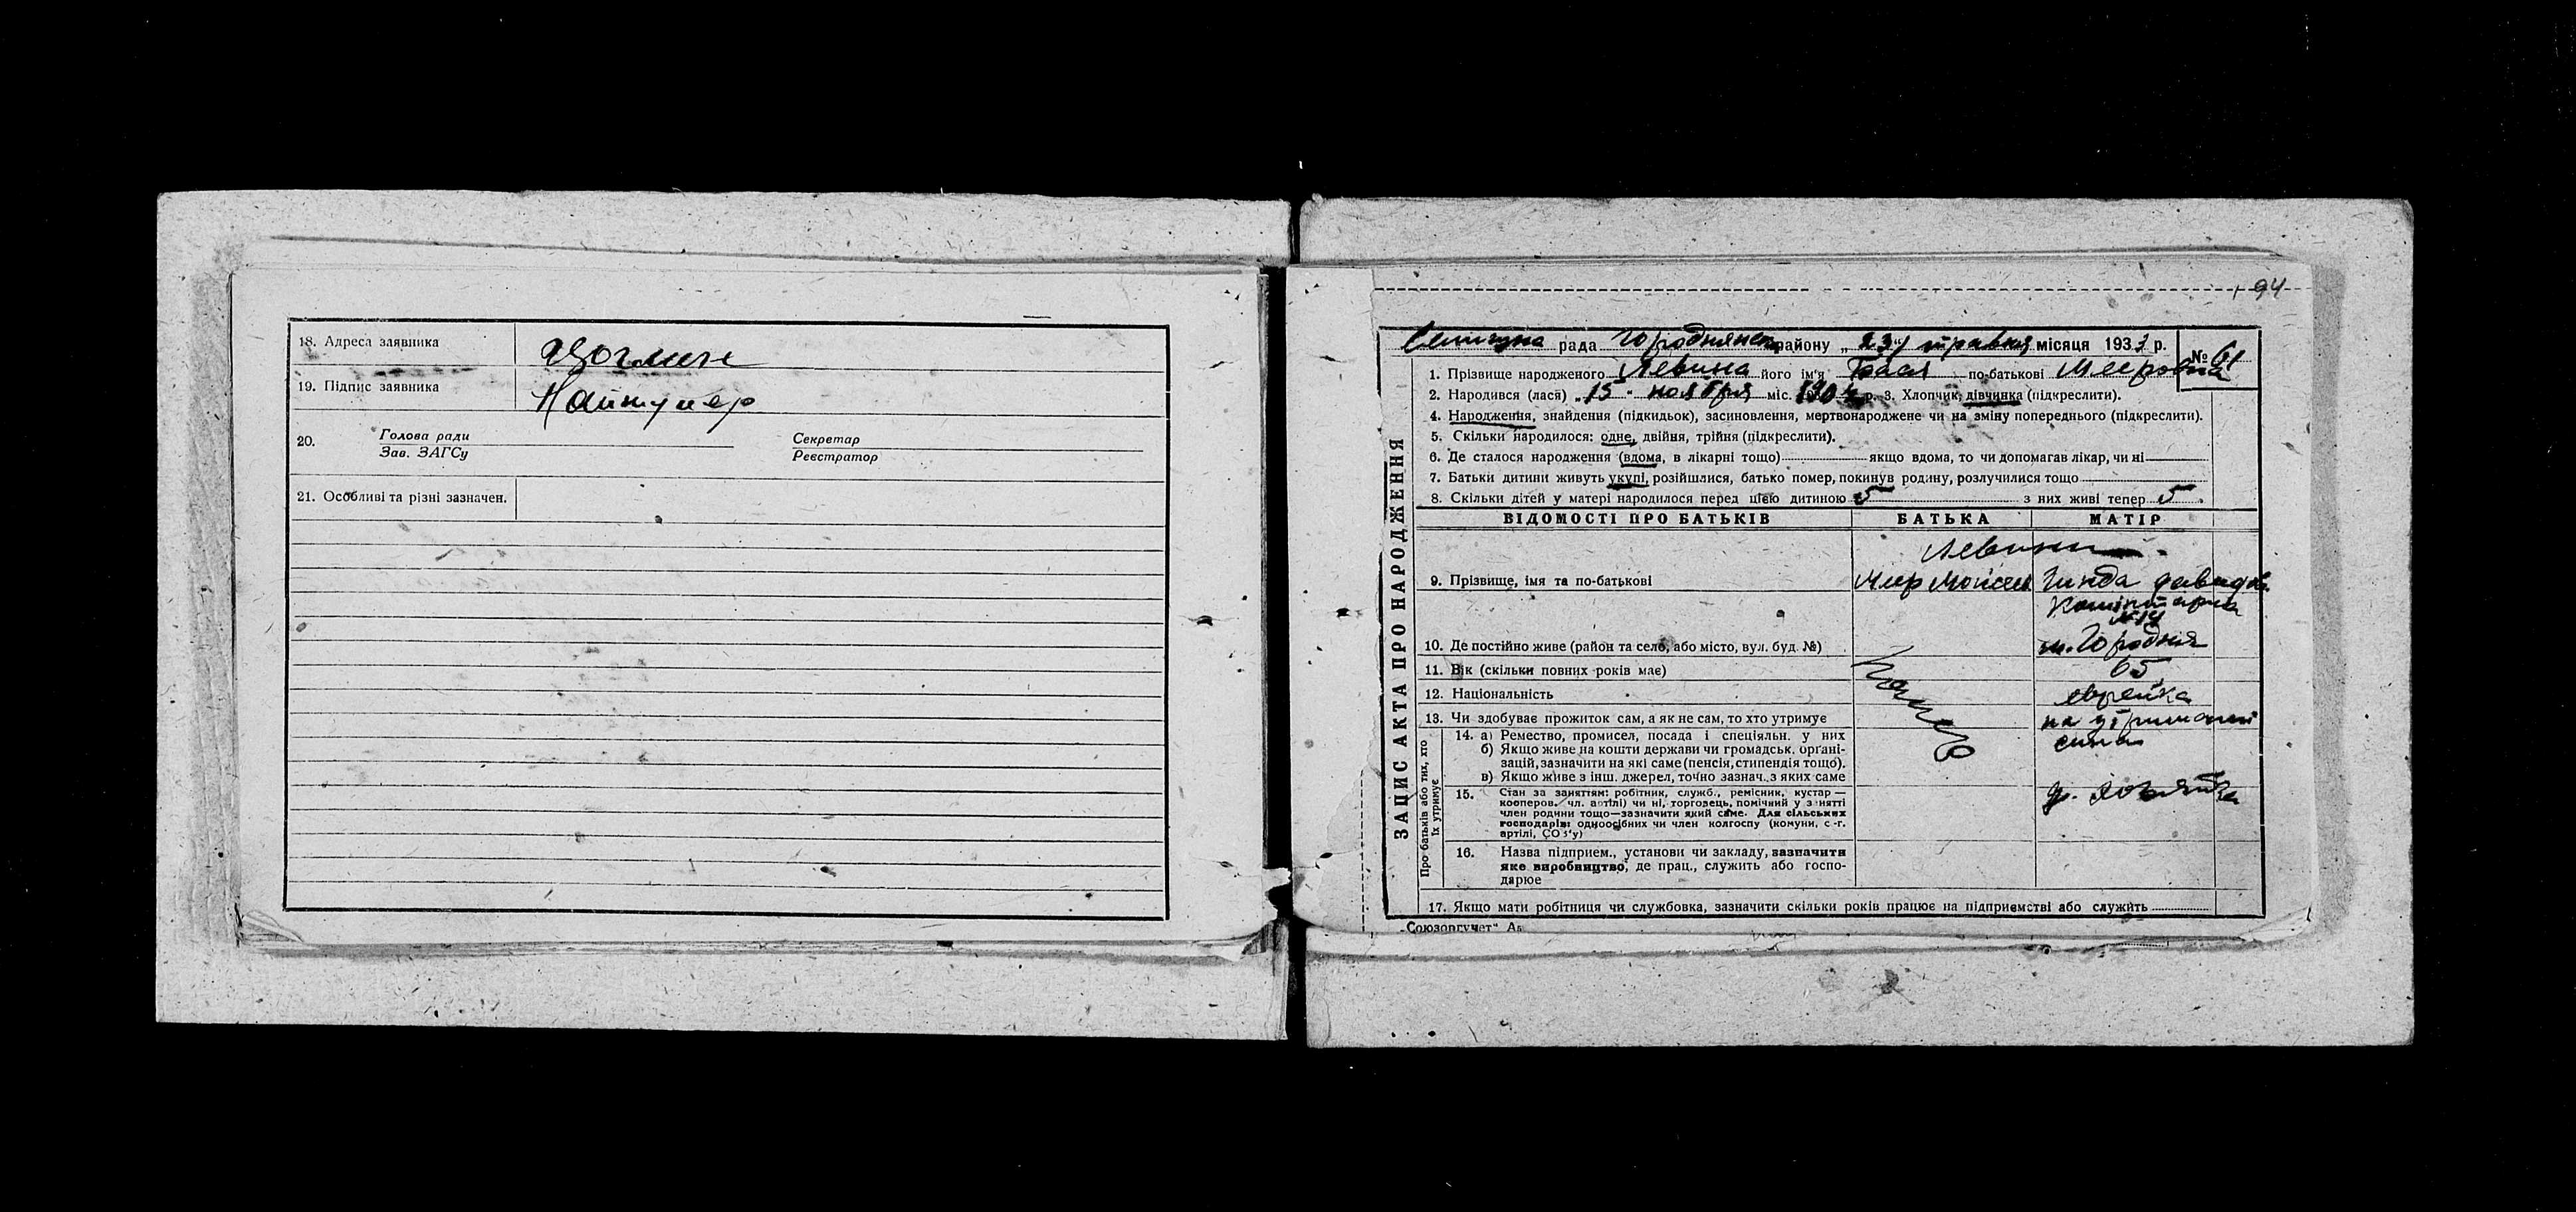 18. Адреса заявника
19. Підпис заявника
20.
Голова ради
Зав. ЗАГСу
Секретар
Реєстратор
21. Особливі та різні зазначен.
94
Селищна рада Городнянськ району „23" травня місяця 1933 р.
№ 61
ЗАПИС АКТА ПРО НАРОДЖЕННЯ
1. Прізвище народженого Левина його ім'я Бася по-батькові Мееровна
2. Народився (лася) „15" ноября міс. 1904 р. 3. Хлопчик, дівчинка (підкреслити).
4. Народження, знайдення (підкидьок), засиновлення, мертвонароджене чи на зміну попереднього (підкреслити).
5. Скільки народилося: одне, двійня, трійня (підкреслити).
6. Де сталося народження (вдома, в лікарні тощо) якщо вдома, то чи допомагав лікар, чи ні
7. Батьки дитини живуть укупі, розійшлися, батько помер, покинув родину, розлучилися тощо
8. Скільки дітей у матері народилося перед цією дитиною 5 з них живі тепер 5
ВІДОМОСТІ ПРО БАТЬКІВ БАТЬКА МАТІР
Левини
9. Прізвище, імя та по-батькові Меер Гинда Давидов.
№ 14
10. Де постійно живе (район та село, або місто, вул. буд. №) м. Городня
11. Вік (скільки повних років має) 65
12. Національність еврейка
13. Чи здобуває прожиток сам, а як не сам, то хто утримує на утриманні
сина
Про батьків або тих, хто їх утримує
14. а) Ремество, промисел, посада і спеціяльн. у них
б) Якщо живе на кошти держави чи громадськ. органі-
зацій, зазначити на які саме (пенсія, стипендія тощо).
в) Якщо живе з інш. джерел, точно зазнач. з яких саме
15. Стан за заняттям: робітник, служб., ремісник, кустар —
кооперов. чл. артілі) чи ні, торговець, помічний у занятті
член родини тощо—зазначити який саме. Для сільських
господарів: одноосібних чи член колгоспу (комуни, с.-г.
артілі, СОЗ'у)
16. Назва підприєм., установи чи закладу, зазначити
яке виробництво, де прац., служить або госпо-
дарює
17. Якщо мати робітниця чи службовка, зазначити скільки років працює на підприємстві або служить
„Союзоргучет"